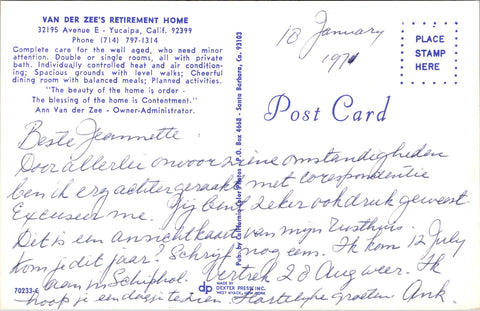 VAN DER ZEE'S RETIREMENT HOME
32195 Avenue E - Yucaipa, Calif. 92399
Phone (714) 797-1314
Complete care for the well aged, who need minor
attention. Double or single rooms, all with private
bath. Individually controlled heat and air condition-
ing; Spacious grounds with level walks; Cheerful
dining room with balanced meals; Planned activities.
"The beauty of the home is order -
The blessing of the home is Contentment."
Ann Van der Zee - Owner-Administrator.
18 January
1971
PLACE
STAMP
HERE
Post Card
Pub. by California Color Photos P. O. Box 4668 - Santa Barbara, Ca. 93103
Beste Jeannette:
Door allerlei onvoorziene omstandigheden
ben ik erg achter geraakt met corespondentie
Excuseer me. Jij bent zeker ook druk geweest
Dit is een ansichtkaart van mijn Rusthuis.
Kom je dit jaar? Schrijf nog eens. Ik kom 12 July
aan in Schiphol. Vertrek 28 Aug weer. Ik
hoop je een dagje te zien. Hartelijke groeten Ank.
70233-C
dp
MADE BY
DEXTER PRESS, INC.
WEST NYACK, NEW YORK